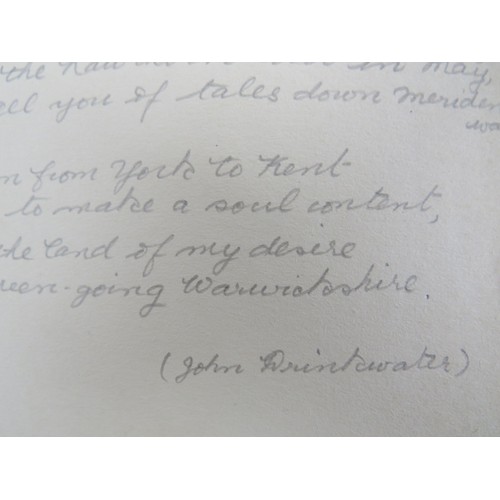 the in May,
ell you of tales down Meriden
wa
n from York to Kent
to make a soul content,
the land of my desire
een-going Warwickshire.
(John Drinkwater)